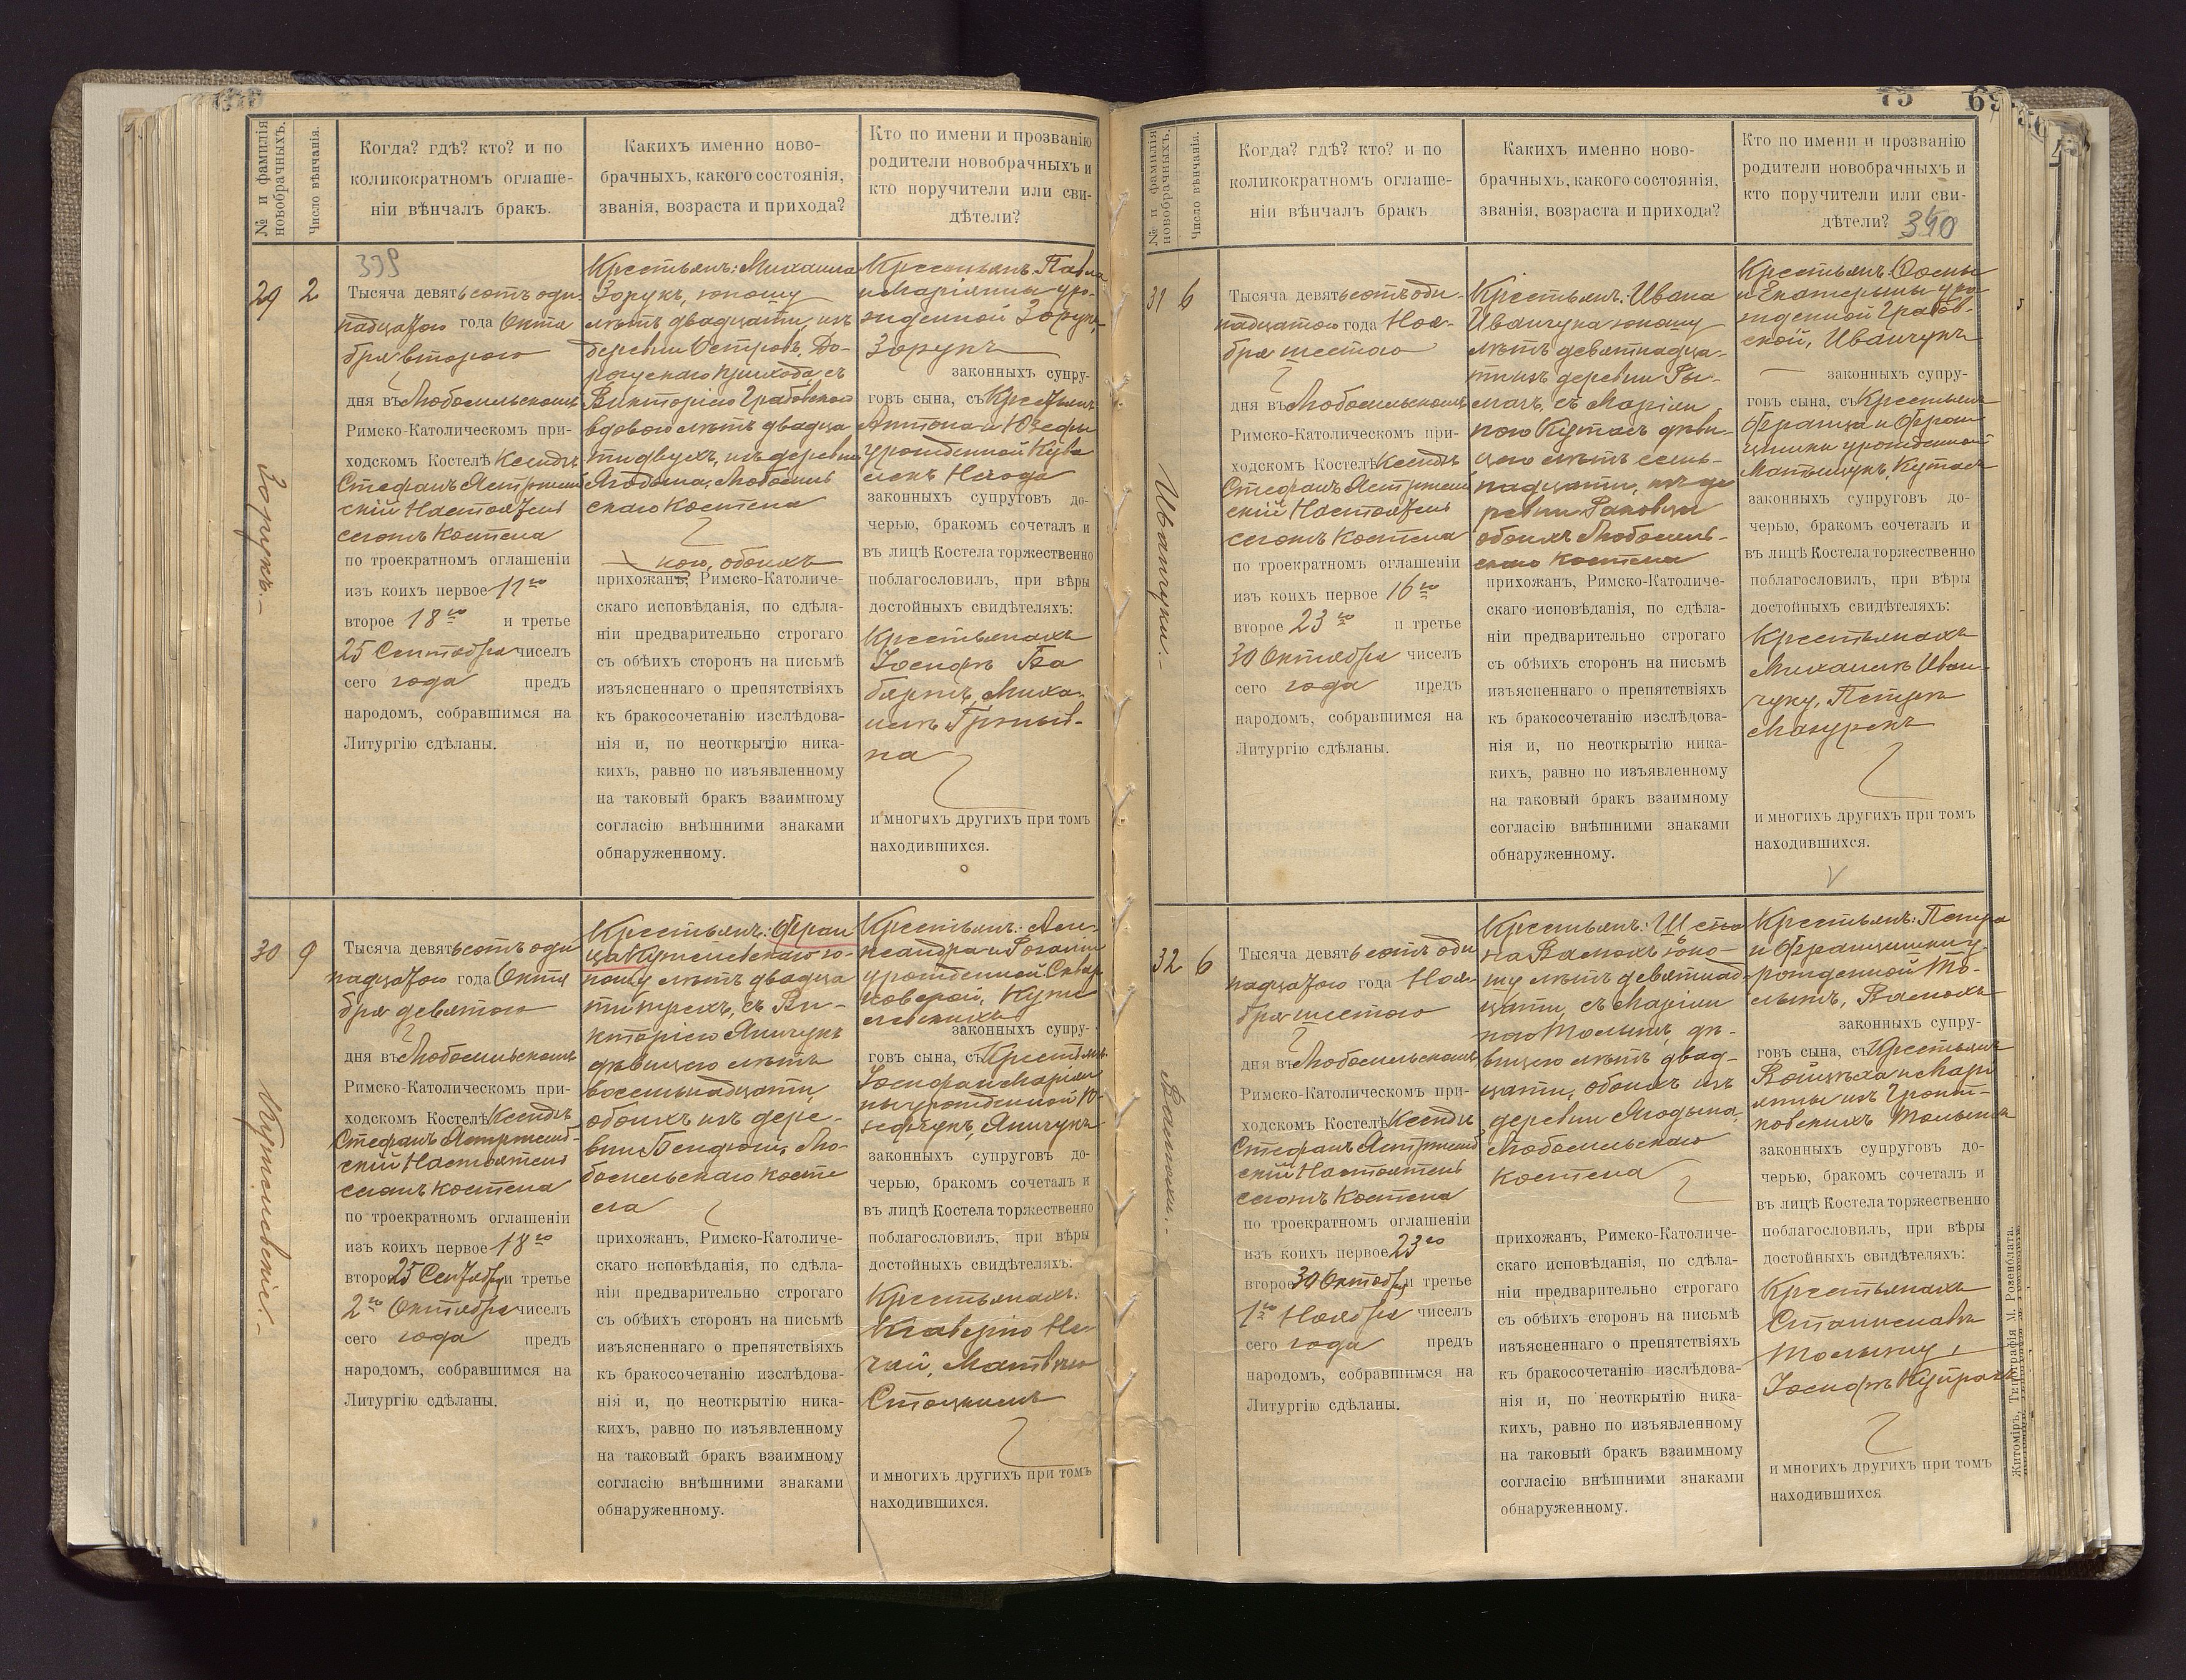 № и фамилія
новобрачныхъ.
Число вѣнчанія.
Когда? гдѣ? кто? и по
коликократномъ оглаше-
ніи вѣнчалъ бракъ.
Каких​ъ именно ново-
брачныхъ, какого состоянія,
званія, возраста и прихода?
Кто по имени и прозванію
родители новобрачныхъ и
кто поручители или сви-
дѣтели?
339
29
2
Зорукъ.-
Тысяча девятьсотъ оди-
надцатого года Октя
бря второго
дня въ Любомльскомъ
Римско-Католическомъ при-
ходскомъ Костелѣ Ксендзъ
Стефанъ Ястржемб
скій Настоятель
сегожъ Костела
по троекратномъ оглашеніи
изъ коихъ первое 11го
второе 18го и третье
25 Сентября чиселъ
сего года предъ
народомъ, собравшимся на
Литургію сдѣланы.
Крестьянъ: Михаила
Зорукъ, юношу
лѣтъ двадцати, изъ
деревни Островъ, До-
рогускаго прихода съ
Викторіею Грабовскою
вдовою лѣтъ двадца
ти двухъ, изъ деревни
Ягодына, Любомль
скаго Костела
кою, обоихъ
прихожанъ, Римско-Католиче-
скаго исповѣданія, по сдѣла-
ніи предварительно строгаго
съ обѣихъ сторонъ на письмѣ
изъясненнаго о препятствіяхъ
къ бракосочетанію изслѣдова-
нія и, по неоткрытію ника-
кихъ, равно по изъявленному
на таковый бракъ взаимному
согласію внѣшними знаками
обнаруженному.
Крестьянъ: Павла
и Маріянны уро-
жденной Зорукъ,
Зорукъ
законныхъ супру-
говъ сына, съ Крестьянъ
Антона и Юзефы
урожденной
законныхъ супруговъ до-
черью, бракомъ сочеталъ и
въ лицѣ Костела торжественно
поблагословилъ, при вѣры
достойныхъ свидѣтеляхъ:
Крестьянахъ
Іосифъ
Миха-
илъ
и многихъ другихъ при томъ
находившихся.
30
9
Кутелевскіе.-
Тысяча девятьсотъ оди
надцатого года Октя
бря девятого
дня въ Любомльскомъ
Римско-Католическомъ при-
ходскомъ Костелѣ Ксендзъ
Стефанъ Ястржемб-
скій Настоятель
сегожъ Костела
по троекратномъ оглашеніи
изъ коихъ первое 18го
второе 25 Сентября и третье
2го Октября чиселъ
сего года предъ
народомъ, собравшимся на
Литургію сдѣланы.
Крестьянъ: Фран
ца ю-
ношу лѣтъ двадца
ти трехъ, съ Ви-
кторіею Янчукъ
дѣвицею лѣтъ
восемьнадцати,
обоихъ изъ дере-
вни Бендюги, Лю-
бомльскаго Косте
ла
прихожанъ, Римско-Католиче-
скаго исповѣданія, по сдѣла-
ніи предварительно строгаго
съ обѣихъ сторонъ на письмѣ
изъясненнаго о препятствіяхъ
къ бракосочетанію изслѣдова-
нія и, по неоткрытію ника-
кихъ, равно по изъявленному
на таковый бракъ взаимному
согласію внѣшними знаками
обнаруженному.
Крестьянъ: Але-
ксандра и Розаліи
урожденной
законныхъ супру-
говъ сына, съ Крестьянъ
Іосифа и Маріян
ны урожденной Ю-
зефчукъ, Янчукъ
законныхъ супруговъ до-
черью, бракомъ сочеталъ и
въ лицѣ Костела торжественно
поблагословилъ, при вѣры
достойныхъ свидѣтеляхъ:
Крестьянахъ:
Ксаверію Не-
чай, Матвѣю
Стоцкимъ
и многихъ другихъ при томъ
находившихся.
75
69
№ и фамилія
новобрачныхъ.
Число вѣнчанія.
Когда? гдѣ? кто? и по
коликократномъ оглаше-
ніи вѣнчалъ бракъ
Какихъ именно ново-
брачныхъ, какого состоянія,
званія, возраста и прихода?
Кто по имени и прозванію
родители новобрачныхъ и
кто поручители или сви-
дѣтели?
340
31
6
Иванчуки.-
Тысяча девятьсотъ оди-
надцатого года Ноя-
бря шестого
дня въ Любомльскомъ
Римско-Католическомъ при-
ходскомъ Костелѣ Ксендзъ
Стефанъ Ястржемб
скій Настоятель
сегожъ Костела
по троекратномъ оглашеніи
изъ коихъ первое 16го
второе 23го и третье
30 Октября чиселъ
сего года предъ
народомъ, собравшимся на
Литургію сдѣланы.
Крестьянъ: Ивана
Иванчука юношу
лѣтъ девятнадца-
ти изъ деревни Ры-
мачъ, съ Маріян
ною Кутасъ дѣви-
цею лѣтъ семь-
надцати, изъ де
ревни Раковца
обоихъ Любомль-
скаго Костела
прихожанъ, Римско-Католиче-
скаго исповѣданія, по сдѣла-
ніи предварительно строгаго
съ обѣихъ сторонъ на письмѣ
изъясненнаго о препятствіяхъ
къ бракосочетанію изслѣдова-
нія и, по неоткрытію ника-
кихъ, равно по изъявленному
на таковый бракъ взаимному
согласію внѣшними знаками
обнаруженному.
Крестьянъ Фомы
и Екатерины уро
жденной Грабов-
ской, Иванчукъ
законныхъ супру-
говъ сына, съ Крестьянъ
Франца и Фран
цишки урожденной
Матыщукъ, Кутасъ
законныхъ супруговъ до-
черью, бракомъ сочеталъ и
въ лицѣ Костела торжественно
поблагословилъ, при вѣры
достойныхъ свидѣтеляхъ:
Крестьянахъ
Михаилъ Иван-
чуку, Петръ
Мазурекъ
и многихъ другихъ при томъ
находившихся.
32
6
Тысяча девятьсотъ оди
надцатого года Ноя-
бря шестого
дня въ Любомльскомъ
Римско-Католическомъ при-
ходскомъ Костелѣ Ксендзъ
Стефанъ Ястржемб
скій Настоятель
сегожъ Костела
по троекратномъ оглашеніи
изъ коихъ первое 23го
второе 30 Октября и третье
1го Ноября чиселъ
сего года предъ
народомъ, собравшимся на
Литургію сдѣланы.
Крестьянъ:
юно-
шу лѣтъ девятнад-
цати, съ Маріян
ною дѣ-
вицею лѣтъ двад-
цати, обоихъ изъ
деревни Ягодына,
Любомльскаго
Костела
прихожанъ, Римско-Католиче-
скаго исповѣданія, по сдѣла-
ніи предварительно строгаго
съ обѣихъ сторонъ на письмѣ
изъясненнаго о препятствіяхъ
къ бракосочетанію изслѣдова-
нія и, по неоткрытію ника-
кихъ, равно по изъявленному
на таковый бракъ взаимному
согласію внѣшними знаками
обнаруженному.
Крестьянъ: Петра
и Францишки у-
рожденной
законныхъ супру-
говъ сына, съ Крестьянъ
Войцѣха и Марі
янны изъ
законныхъ супруговъ до-
черью, бракомъ сочеталъ и
въ лицѣ Костела торжественно
поблагословилъ, при вѣры
достойныхъ свидѣтеляхъ:
Крестьянахъ
Станиславъ
Іосифъ
и многихъ другихъ при томъ
находившихся
Житоміръ, Типографія М. Розенблата.